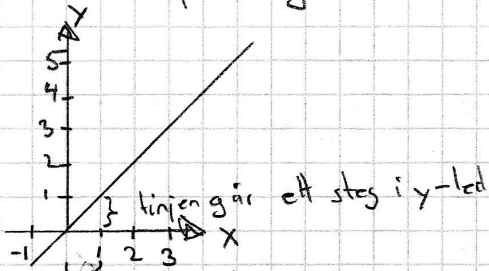 Y
5
4
3
2
1
linjen går ett steg i y-led
X
-1
1
2
3